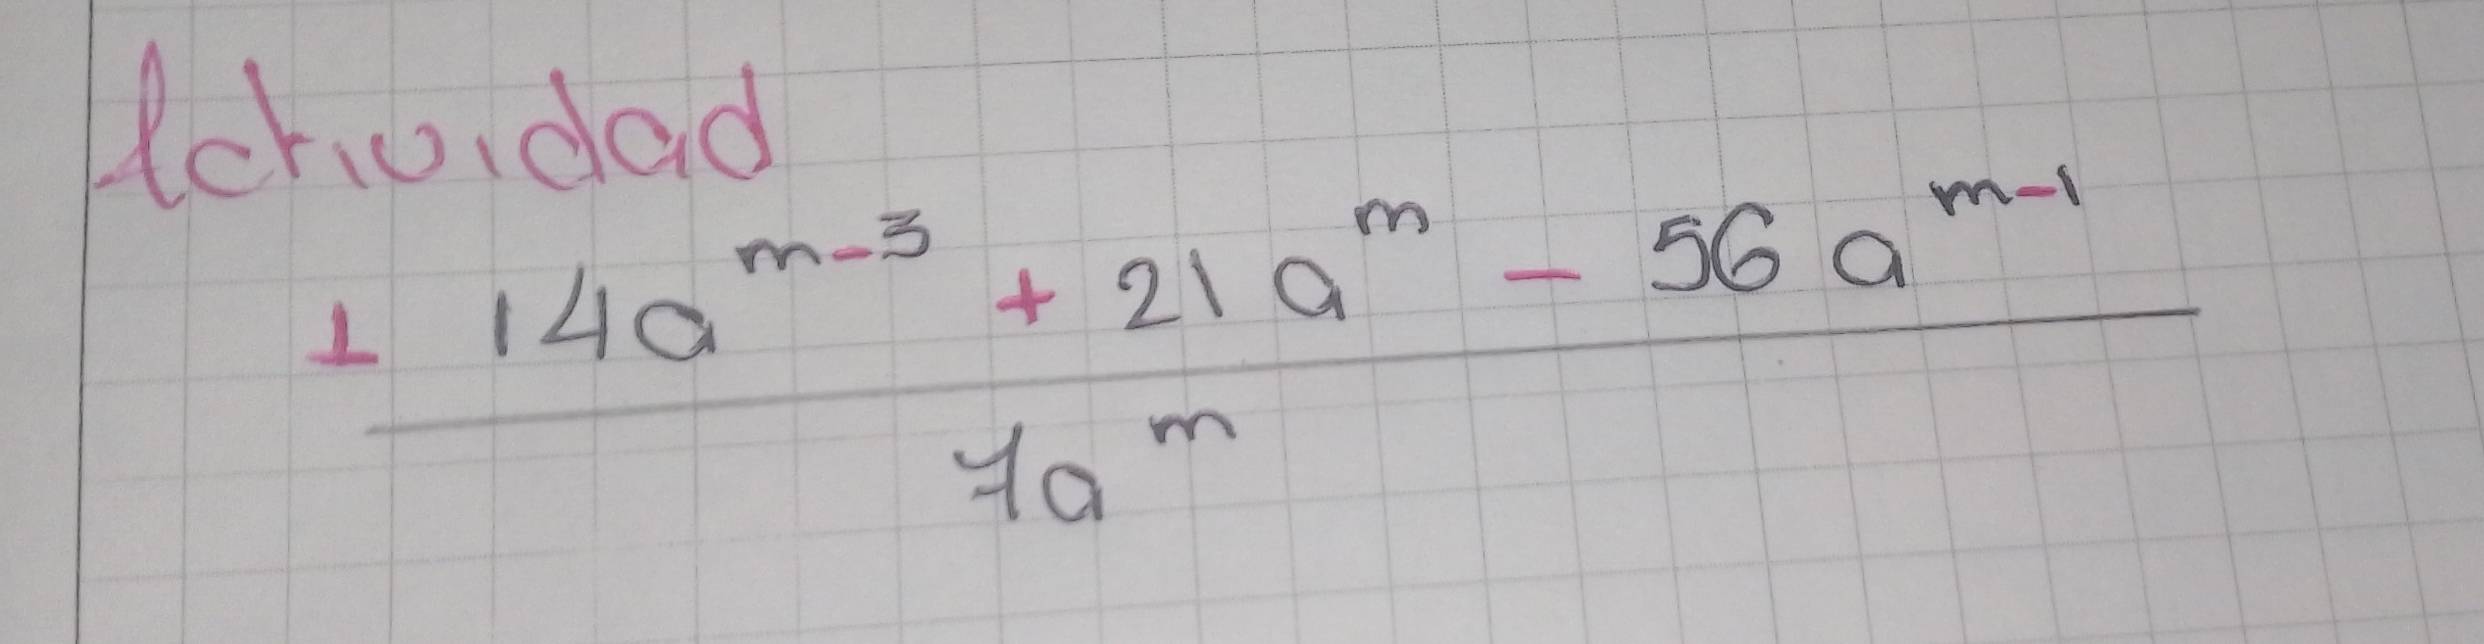 Actividad
1 14a^{m-3} + 21a^{m} - 56a^{m-1}
7a^{m}